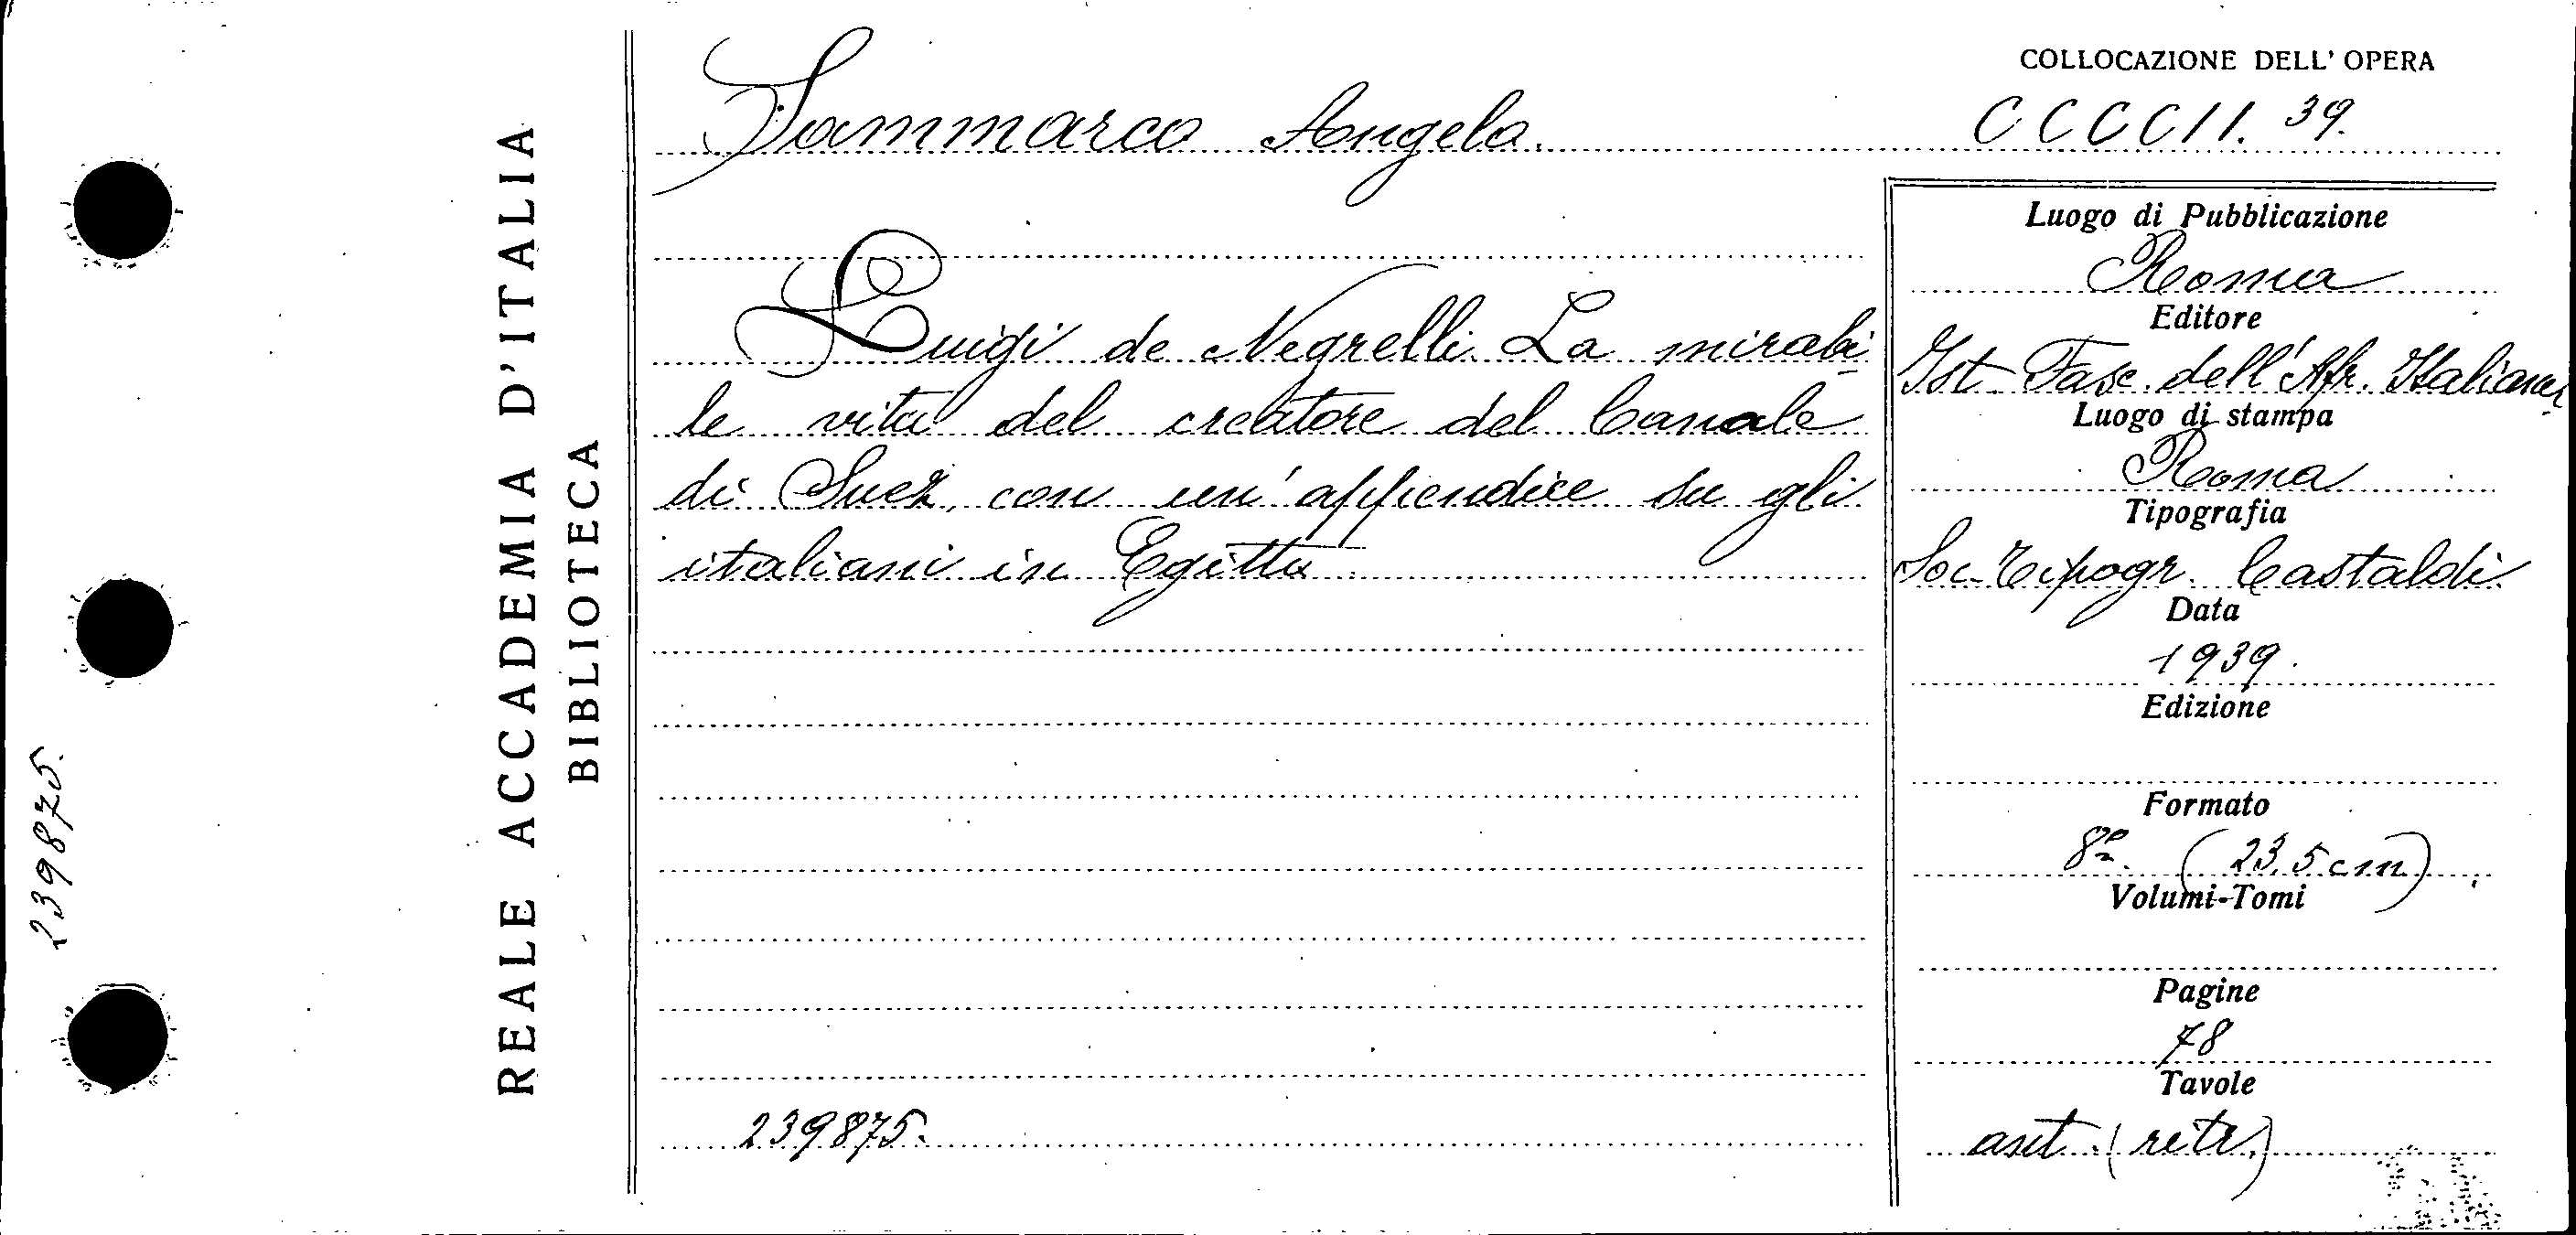 239875.
REALE ACCADEMIA D'ITALIA
BIBLIOTECA
Sammarco Angelo.
COLLOCAZIONE DELL' OPERA
CCCCII. 39.
Luigi de Negrelli. La mirabi-
le vita del creatore del Canale
di Suez, con un' appendice su gli
italiani in Egitto.
239875.
Luogo di Pubblicazione
Roma
Editore
Ist. Fasc. dell' Afr. Italiana
Luogo di stampa
Roma
Tipografia
Soc. Tipogr. Castaldi
Data
1939.
Edizione
Formato
8º. (23,5 cm)
Volumi-Tomi
Pagine
78
Tavole
ant. (ritr.)